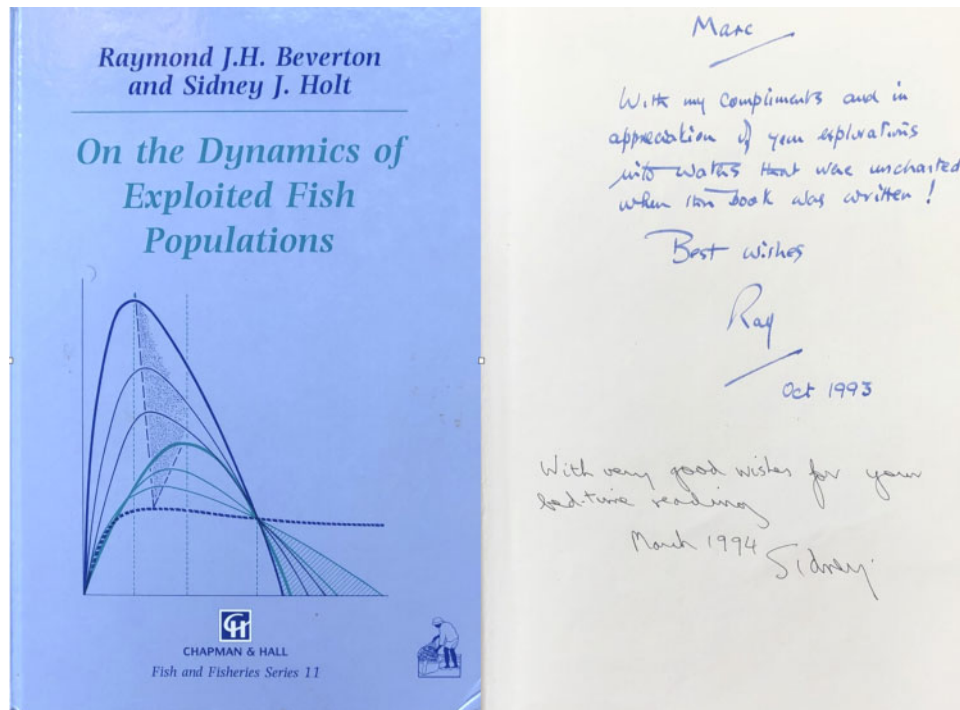 Raymond J.H. Beverton
and Sidney J. Holt
On the Dynamics of
Exploited Fish
Populations
CH
CHAPMAN & HALL
Fish and Fisheries Series 11
Marc
With my compliments and in
appreciation of your explorations
into waters that were uncharted
when this book was written!
Best wishes
Ray
Oct 1993
With very good wishes for your
bed-time reading
March 1994
Sidney.